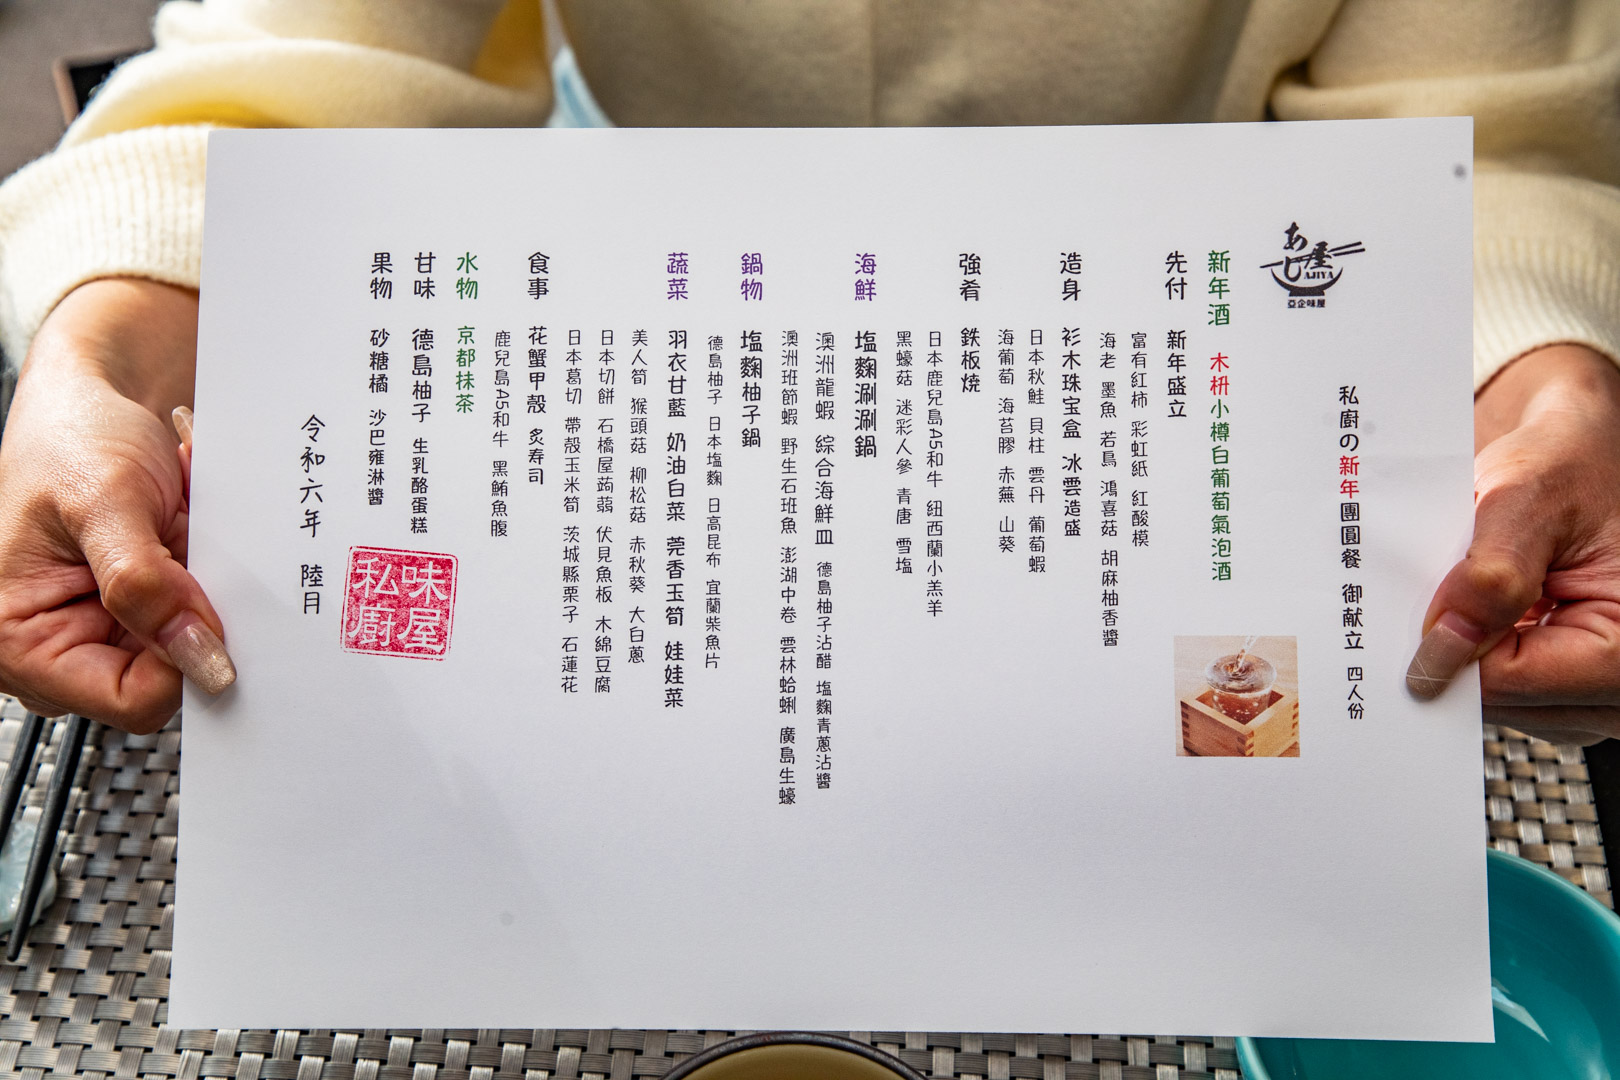 あじ屋
AJIYA
亞企味屋
私廚の新年團圓餐 御献立 四人份
新年酒 木枡小樽白葡萄氣泡酒
先付 新年盛立
富有紅柿 彩虹紙 紅酸模
海老 墨魚 若鳥 鴻喜菇 胡麻柚香醬
造身 衫木珠宝盒 冰雲造盛
日本秋鮭 貝柱 雲丹 葡萄蝦
海葡萄 海苔膠 赤蕪 山葵
強肴 鉄板燒
日本鹿兒島A5和牛 紐西蘭小羔羊
黑蠔菇 迷彩人參 青唐 雪塩
海鮮 塩麴涮涮鍋
澳洲龍蝦 綜合海鮮皿 德島柚子沾醋 塩麴青蔥沾醬
澳洲班節蝦 野生石班魚 澎湖中卷 雲林蛤蜊 廣島生蠔
鍋物 塩麴柚子鍋
德島柚子 日本塩麴 日高昆布 宜蘭柴魚片
蔬菜 羽衣甘藍 奶油白菜 莞香玉筍 娃娃菜
美人筍 猴頭菇 柳松菇 赤秋葵 大白蔥
日本切餅 石橋屋蒟蒻 伏見魚板 木綿豆腐
日本葛切 帶殼玉米筍 茨城縣栗子 石蓮花
食事 花蟹甲殼 炙寿司
鹿兒島A5和牛 黑鮪魚腹
水物 京都抹茶
甘味 德島柚子 生乳酪蛋糕
果物 砂糖橘 沙巴雍淋醬
令和六年 陸月
味屋
私廚